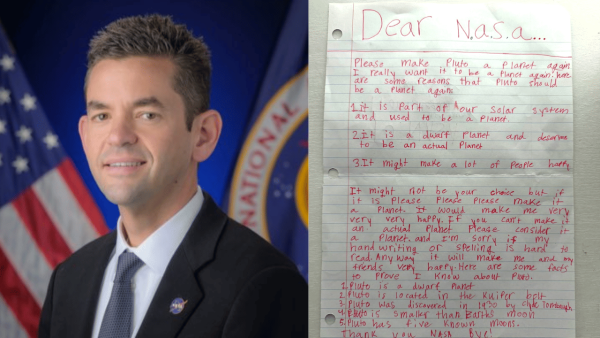 NATIONAL
Dear N.a.s.a...
Please make Pluto a Planet again
I really want it to be a Planet again. here
are some reasons that Pluto should
be a Planet again
1. it is Part of our solar system
and used to be a Planet.
2. It is a dwarf Planet and deserves
to be an actual Planet
3 It might make a lot of People happy
It might not be your choice but if
it is Please Please Please make it
a Planet. It would make me very
very very happy. If you can't make it
an actual Planet Please consider it
a Planet. and I'm sorry if my
hand writing or spelling is hard to
read. Any way it will make me and my
friends very happy. Here are some facts
to Prove I know about Pluto.
1. Pluto is a dwarf Planet
2. Pluto is located in the Kuiper belt
3. Pluto was discovered in 1930 by Clyde Tombaugh
4. Pluto is smaller than Earths moon
5. Pluto has five known moons.
Thank you NASA Bye!